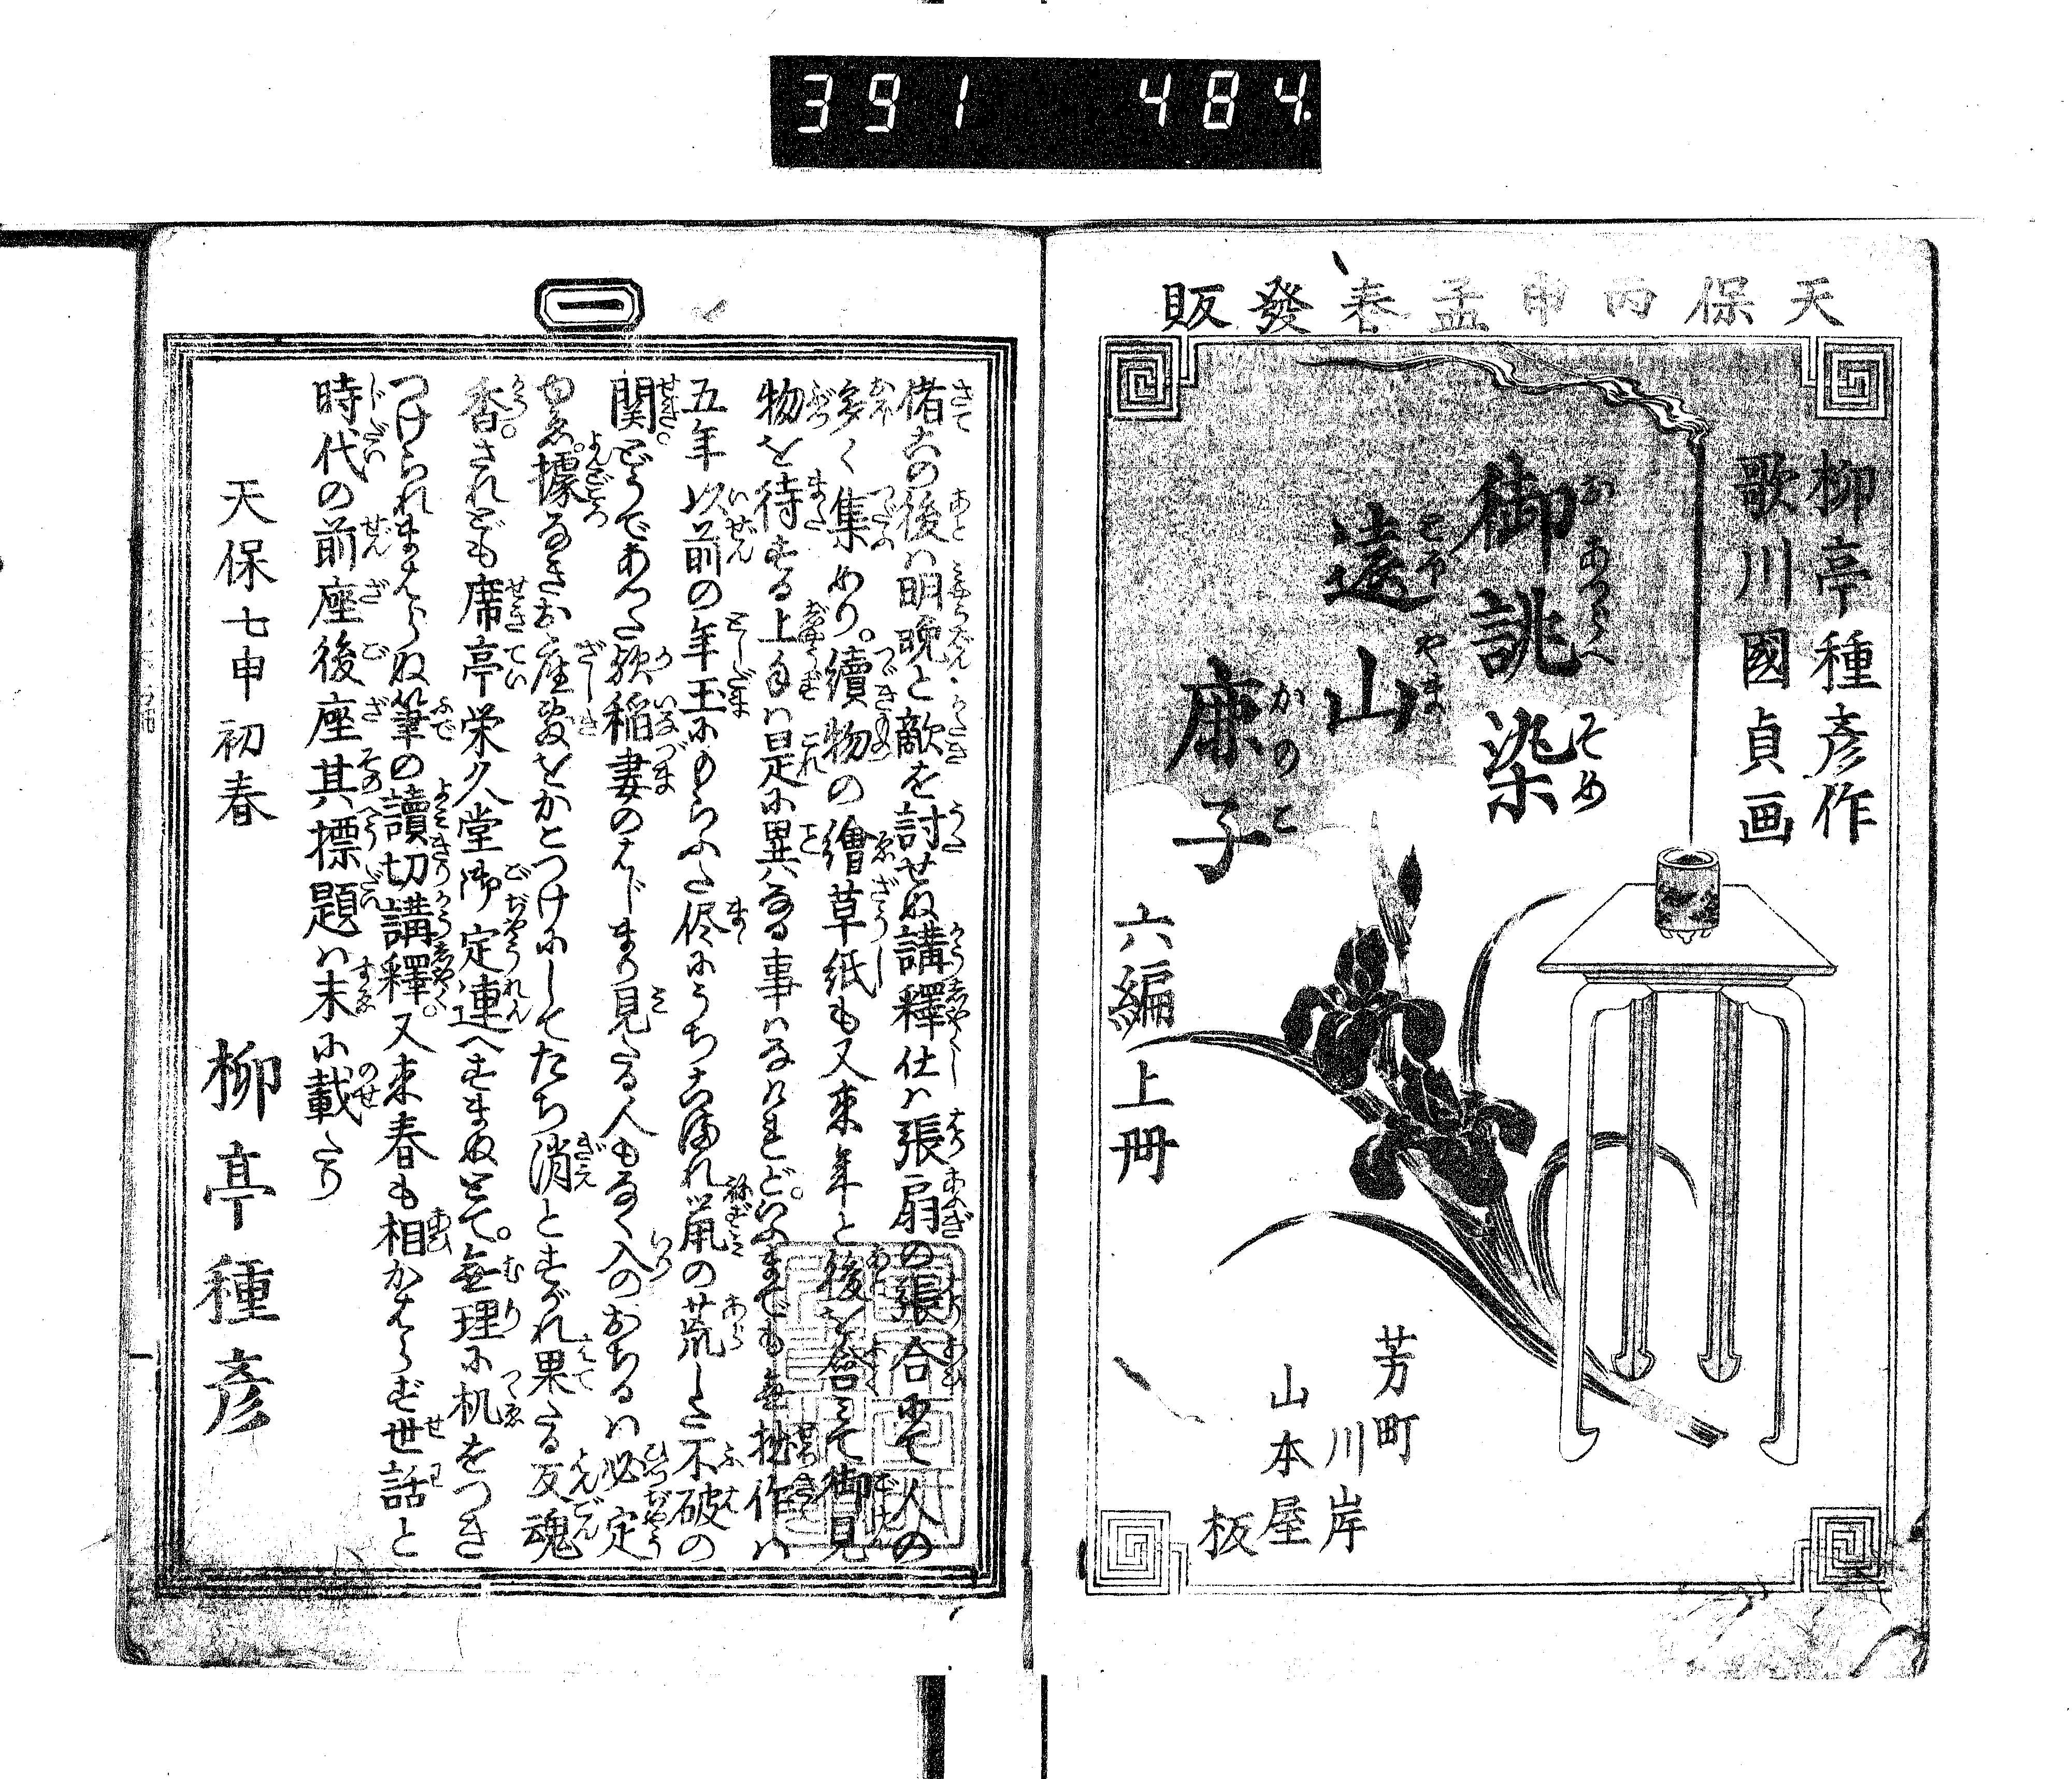 391 484.
天保丙申孟春發販
柳亭種彦作
歌川國貞画
御誂染
おあつらへそめ
遠山
とほやま
鹿子
かのこ
六編上册
芳町
川岸
山本屋
板
一
偖古の後ハ明晩と敵を討せぬ講釋仕ハ張扇の張合にて人の
多く集めり。續物の繪草紙も又来年と後を啓みて御見
物を待する上手ハ是に異ハなる事ハなけれど。いふまでも無拙作ハ
五年以前の年玉にもらふた侭にうち古ぼれ鼠の荒した不破の
関。どうであつた歟稲妻のはじまり見たる人もなく入のおちるハ必定
ゆゑ。據なきお座敷をかとつけにしてたち消とはずれ果たる反魂
香。されども席亭栄久堂御定連へすまぬとて。無理に机をつき
つけられまはらぬ筆の讀切講釋。又来春も相かはらず世話と
時代の前座後座其標題ハ末に載たり
天保七申初春
柳亭種彦